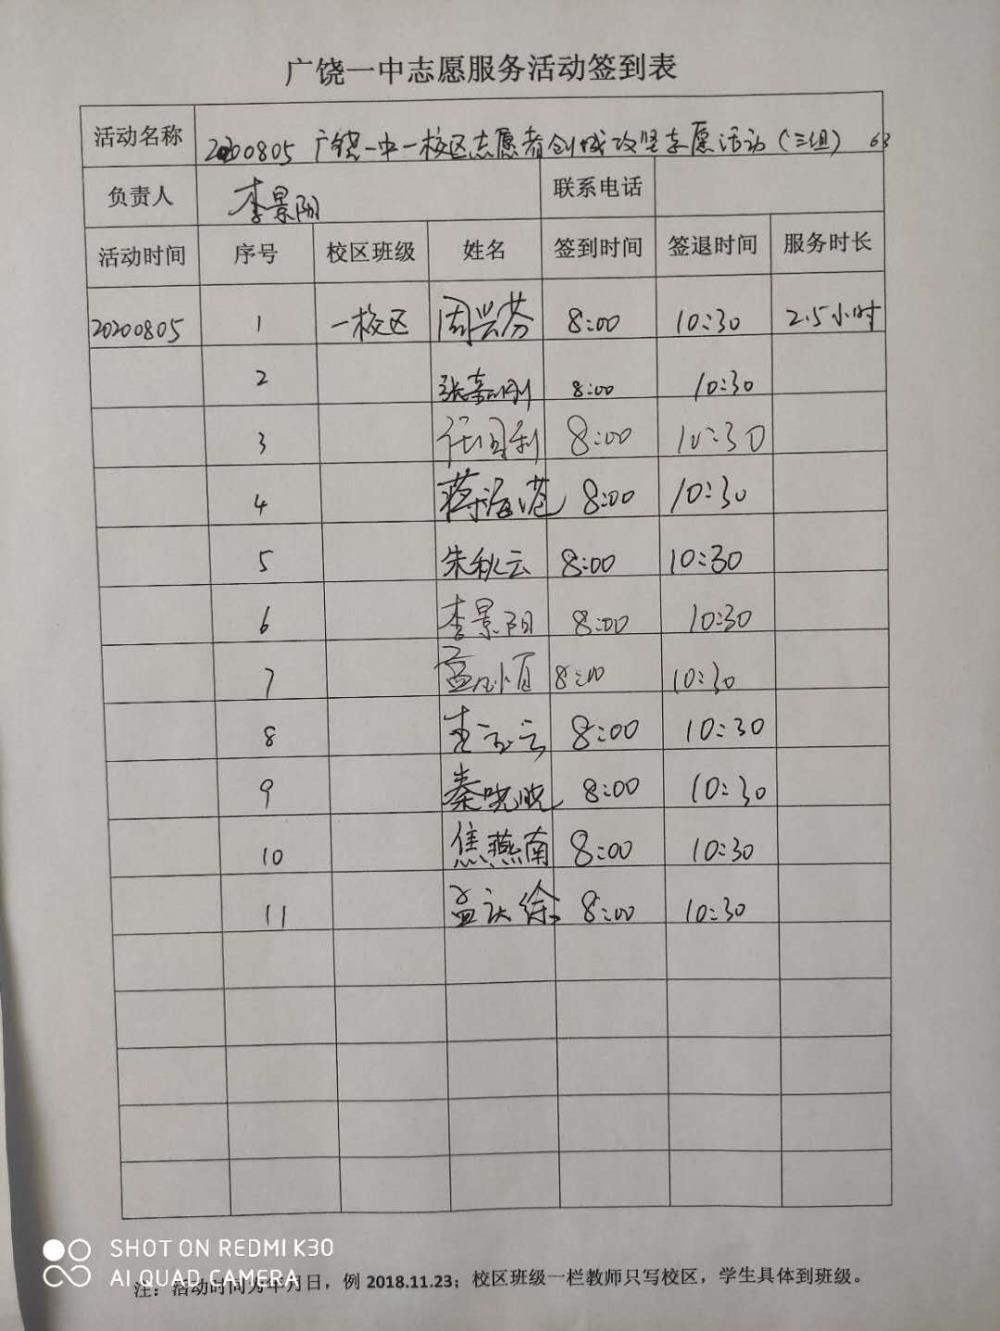 广饶一中志愿服务活动签到表
活动名称 20200805 广饶一中一校区志愿者创城攻坚志愿活动(三组) 63
负责人 李景阳 联系电话
活动时间 序号 校区班级 姓名 签到时间 签退时间 服务时长
20200805 1 一校区 周兴芬 8:00 10:30 2.5小时
2 8:00 10:30
3 8:00 10:30
4 蒋海港 8:00 10:30
5 朱秋云 8:00 10:30
6 李景阳 8:00 10:30
7 8:00 10:30
8 8:00 10:30
9 秦晓晓 8:00 10:30
10 焦燕南 8:00 10:30
11 8:00 10:30
SHOT ON REDMI K30
AI QUAD CAMERA
注：活动时间为年月日，例 2018.11.23；校区班级一栏教师只写校区，学生具体到班级。